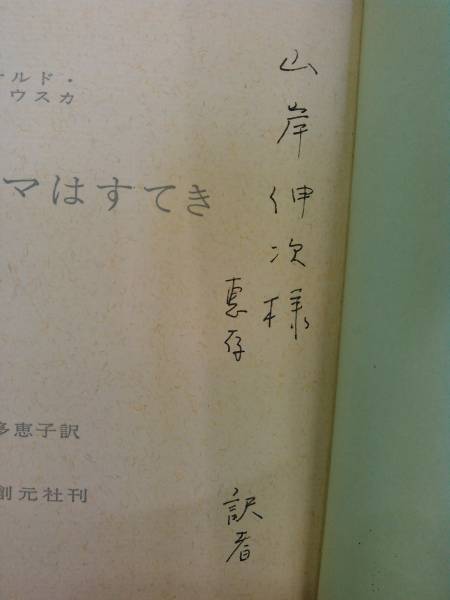 山岸伸次様
恵存
訳者
ナルド・
ウスカ
マはすてき
多恵子訳
創元社刊